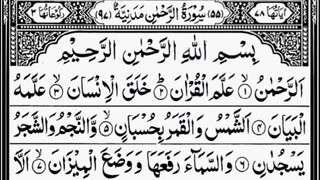 اٰيَاتُهَا ٧٨ (٥٥) سُوْرَةُ الرَّحْمٰنِ مَدَنِيَّةٌ (٩٧) رُكُوْعَاتُهَا ٣
بِسْمِ اللّٰهِ الرَّحْمٰنِ الرَّحِيْمِ
اَلرَّحْمٰنُ ۝١ عَلَّمَ الْقُرْاٰنَ ۝٢ خَلَقَ الْاِنْسَانَ ۝٣ عَلَّمَهُ
الْبَيَانَ ۝٤ اَلشَّمْسُ وَالْقَمَرُ بِحُسْبَانٍ ۝٥ وَّالنَّجْمُ وَالشَّجَرُ
يَسْجُدٰنِ ۝٦ وَالسَّمَآءَ رَفَعَهَا وَوَضَعَ الْمِيْزَانَ ۝٧ اَلَّا